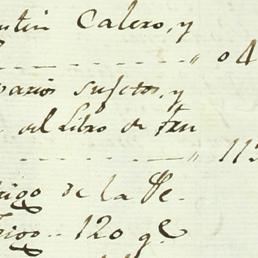 ntin Calero, y
" 04
varios sujetos, y
del Libro de
" 113
rigo de la Ve-
Trigo.. 120 g.e